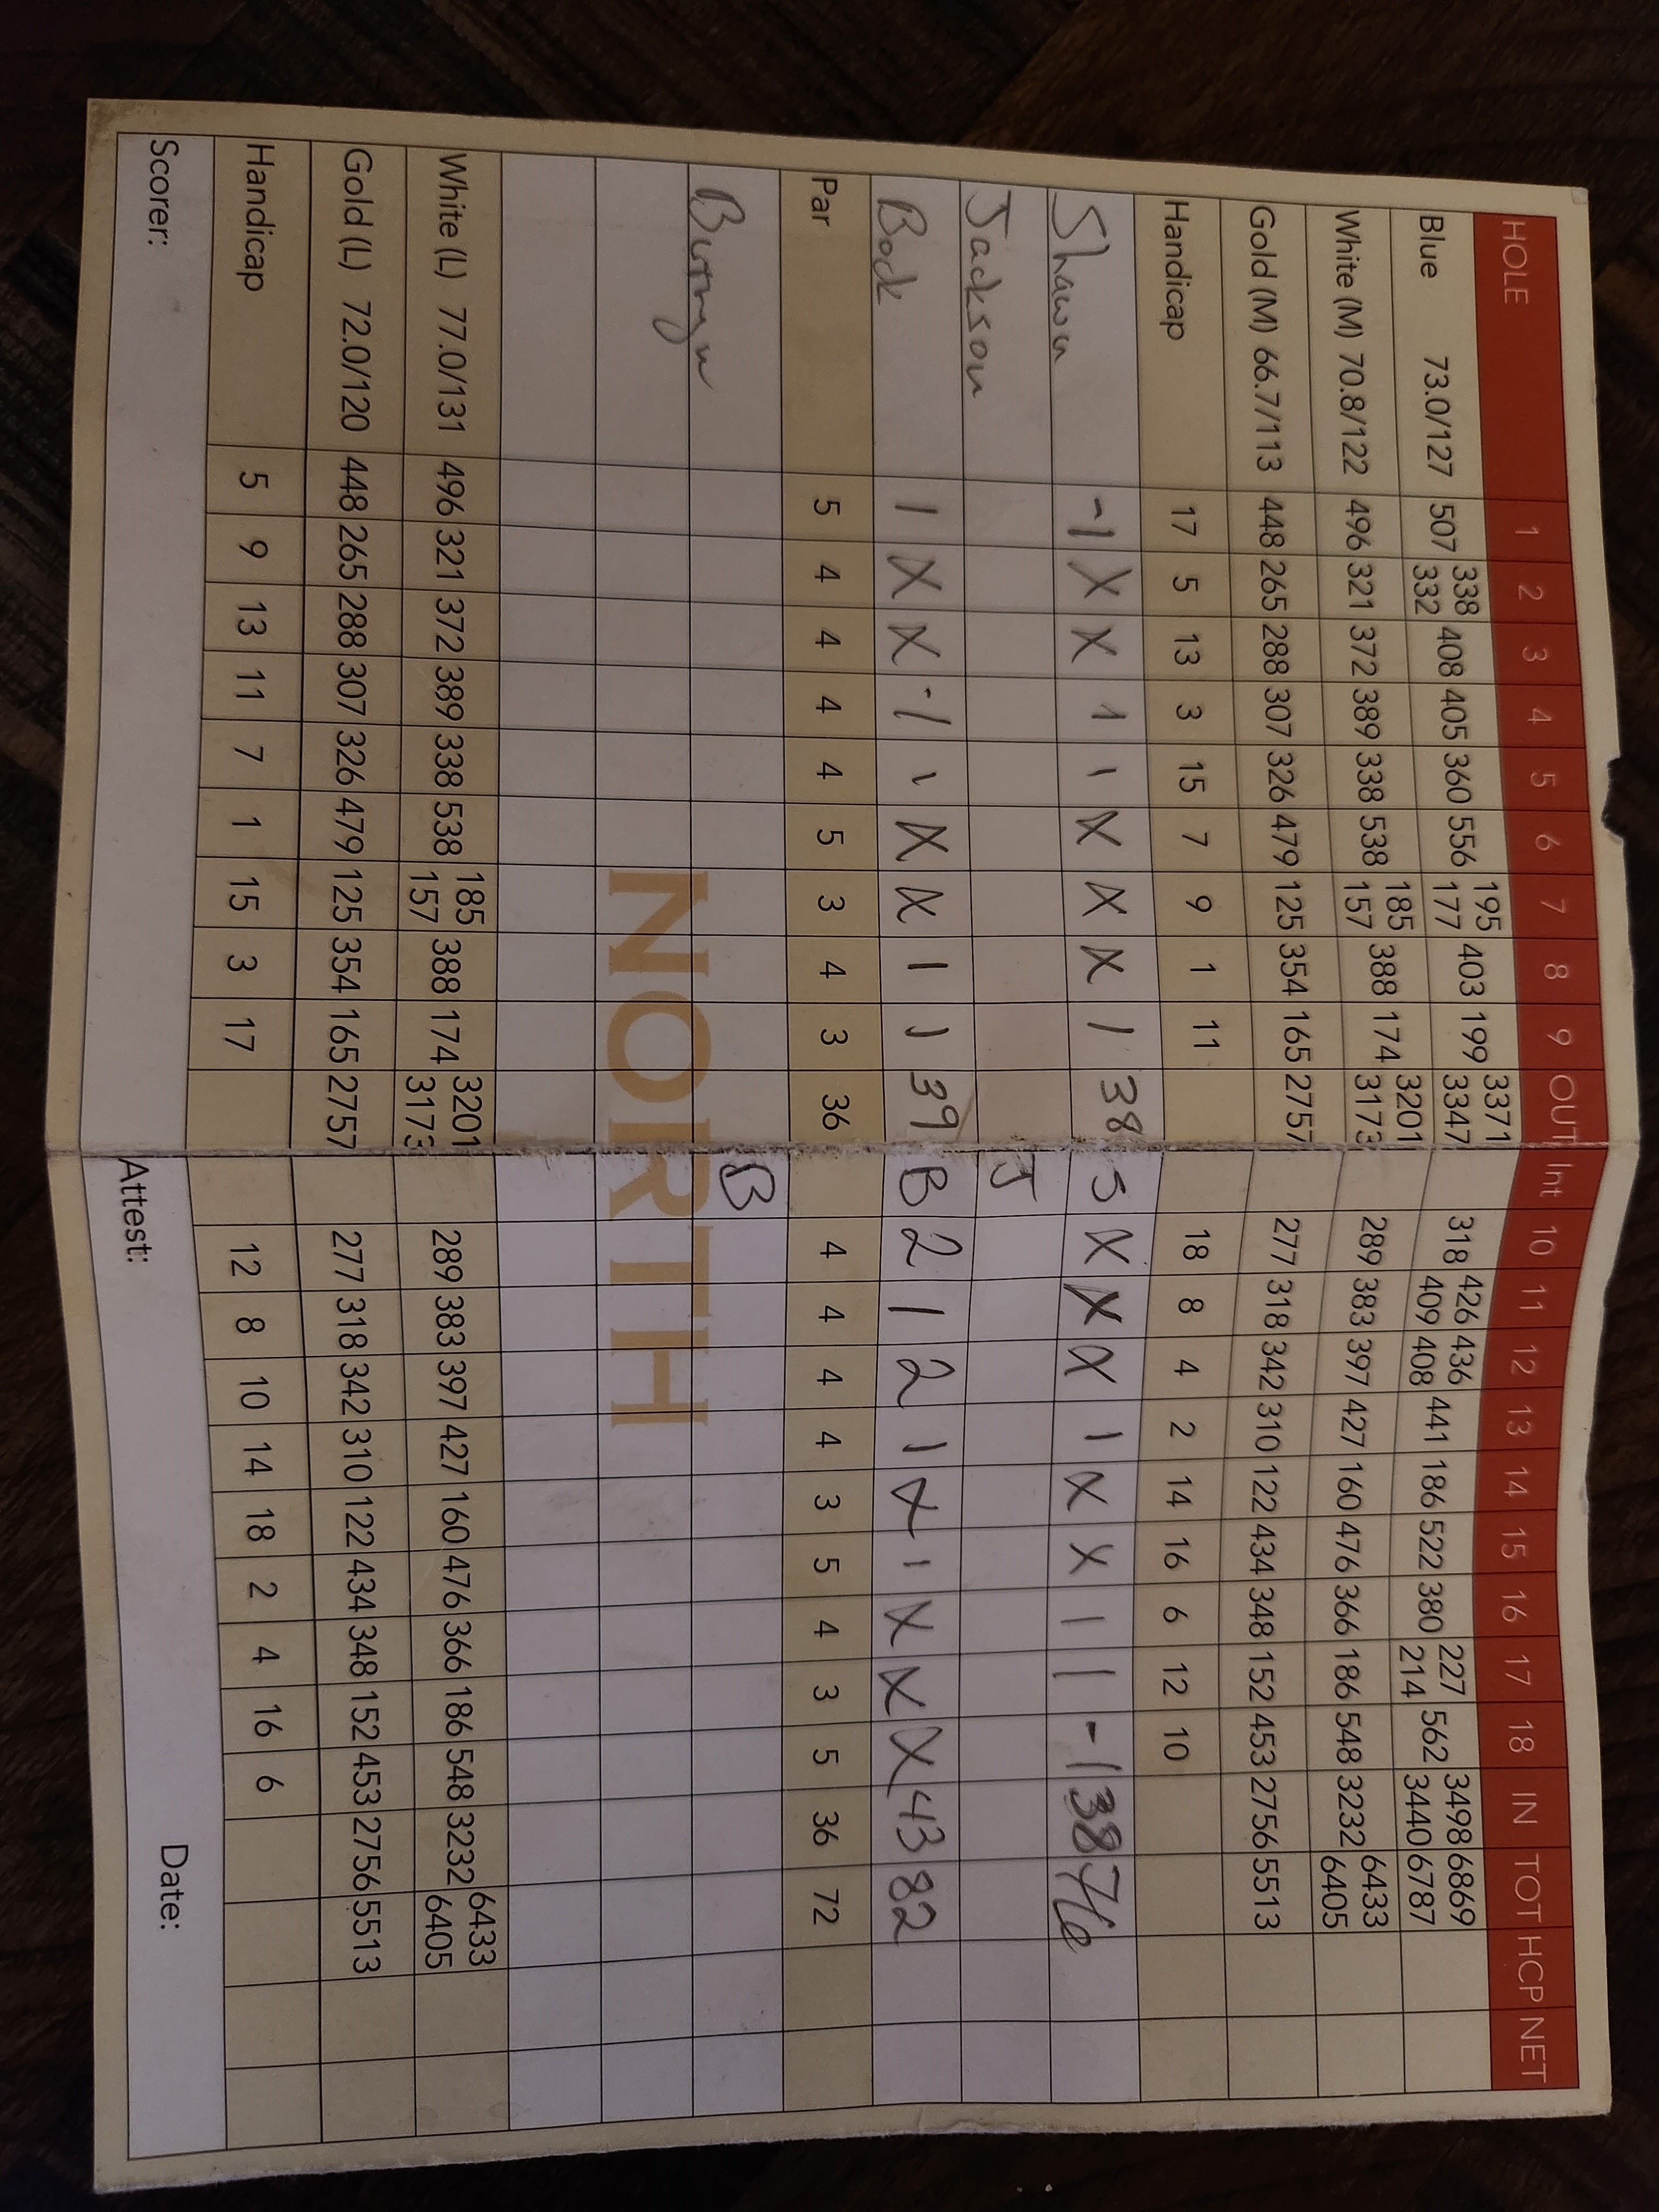 HOLE 1 2 3 4 5 6 7 8 9 OUT Int 10 11 12 13 14 15 16 17 18 IN TOT HCP NET
Blue 73.0/127 507 338 332 408 405 360 556 195 177 403 199 3371 3347 318 426 409 436 408 441 186 522 380 227 214 562 3498 3440 6869 6787
White (M) 70.8/122 496 321 372 389 338 538 185 157 388 174 3201 3173 289 383 397 427 160 476 366 186 548 3232 6433 6405
Gold (M) 66.7/113 448 265 288 307 326 479 125 354 165 2757 277 318 342 310 122 434 348 152 453 2756 5513
Handicap 17 5 13 3 15 7 9 1 11 18 8 4 2 14 16 6 12 10
Shawn -1 X X 1 1 X X X 1 38 S X X X 1 X X 1 1 -1 38 76
Jackson J
Bock 1 X X -1 1 X X 1 1 39 B 2 1 2 1 X 1 X X X 43 82
Par 5 4 4 4 4 5 3 4 3 36 4 4 4 4 3 5 4 3 5 36 72
B
NORTH
White (L) 77.0/131 496 321 372 389 338 538 185 157 388 174 3201 3173 289 383 397 427 160 476 366 186 548 3232 6433 6405
Gold (L) 72.0/120 448 265 288 307 326 479 125 354 165 2757 277 318 342 310 122 434 348 152 453 2756 5513
Handicap 5 9 13 11 7 1 15 3 17 12 8 10 14 18 2 4 16 6
Scorer: Attest: Date: